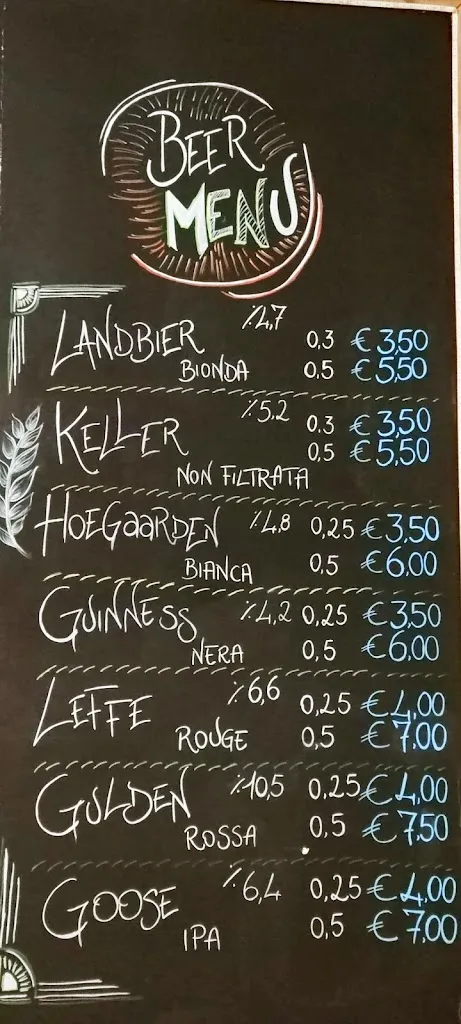 BEER
MENU
LANDBIER ٪4,7 0,3 € 3,50
BIONDA 0,5 € 5,50
KELLER ٪5,2 0,3 € 3,50
0,5 € 5,50
NON FILTRATA
HOEGAARDEN ٪4,8 0,25 € 3,50
BIANCA 0,5 € 6,00
GUINNESS ٪4,2 0,25 € 3,50
NERA 0,5 € 6,00
LEFFE ٪6,6 0,25 € 4,00
ROUGE 0,5 € 7,00
GULDEN ٪10,5 0,25 € 4,00
ROSSA 0,5 € 7,50
GOOSE ٪6,4 0,25 € 4,00
IPA 0,5 € 7,00